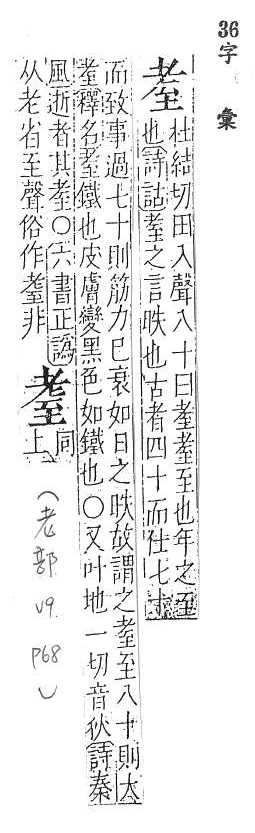 36字彙
耊
杜結切田入聲八十曰耊耊至也年之至
也詩詁耊之言昳也古者四十而仕七十
而致事過七十則筋力已衰如日之昳故謂之耊至八十則大
耊釋名耊鐵也皮膚變黑色如鐵也○又叶地一切音狄詩秦
風逝者其耊○六書正譌
从老省至聲俗作耋非
耋
同
上
(老部 V9 P68)